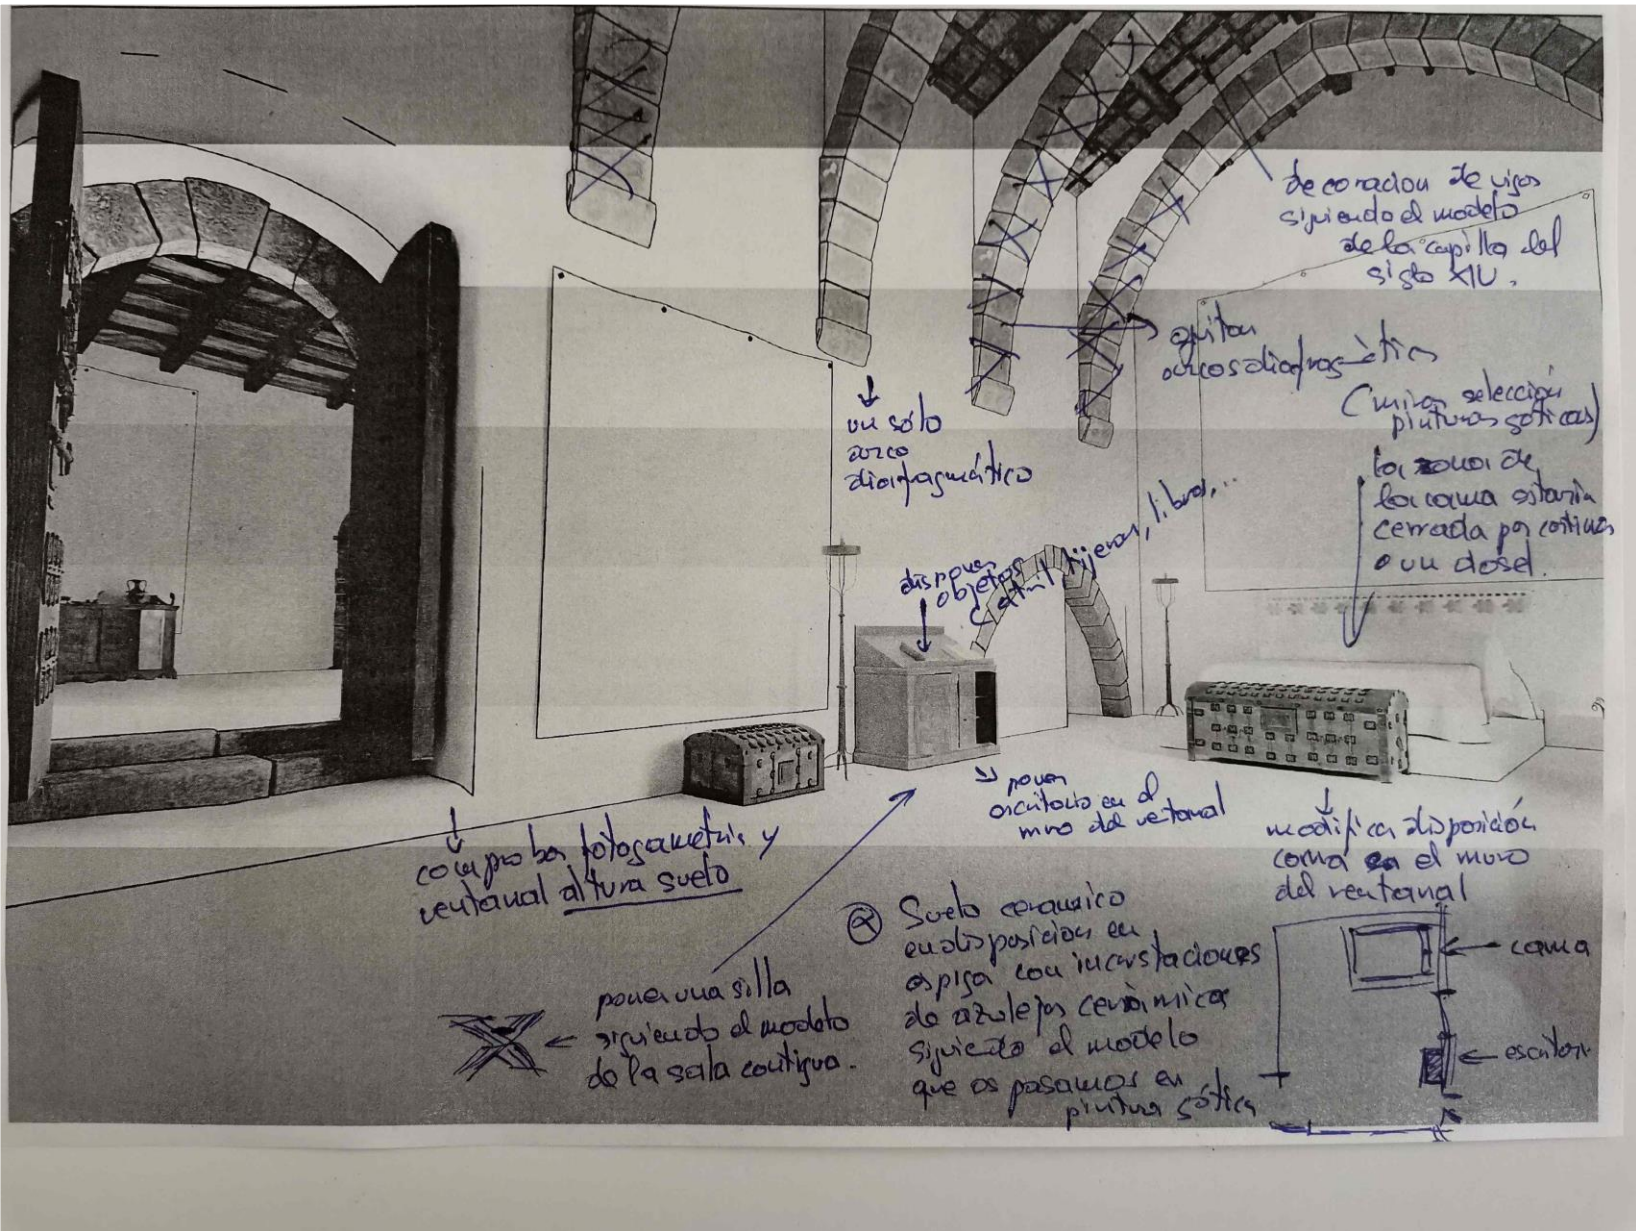 decoracion de vigas
siguiendo el modelo
de la capilla del
siglo XIV.
quitar
arcos diafragmáticos
(mirar selección
pinturas góticas)
la zona de
la cama estaría
cerrada por cortinas
o un dosel.
un sólo
arco
diafragmático
disponer
objetos
(atril tijeras, libros,...
poner
escritorio en el
muro del ventanal
modificar disposición
cama en el muro
del ventanal
comprobar fotogametría y
ventanal altura suelo
poner una silla
siguiendo el modelo
de la sala contigua.
Suelo ceramico
en disposicion en
espiga con incrustaciones
de azulejos cerámicos
siguiendo el modelo
que os pasamos en
pintura gótica
cama
escritorio